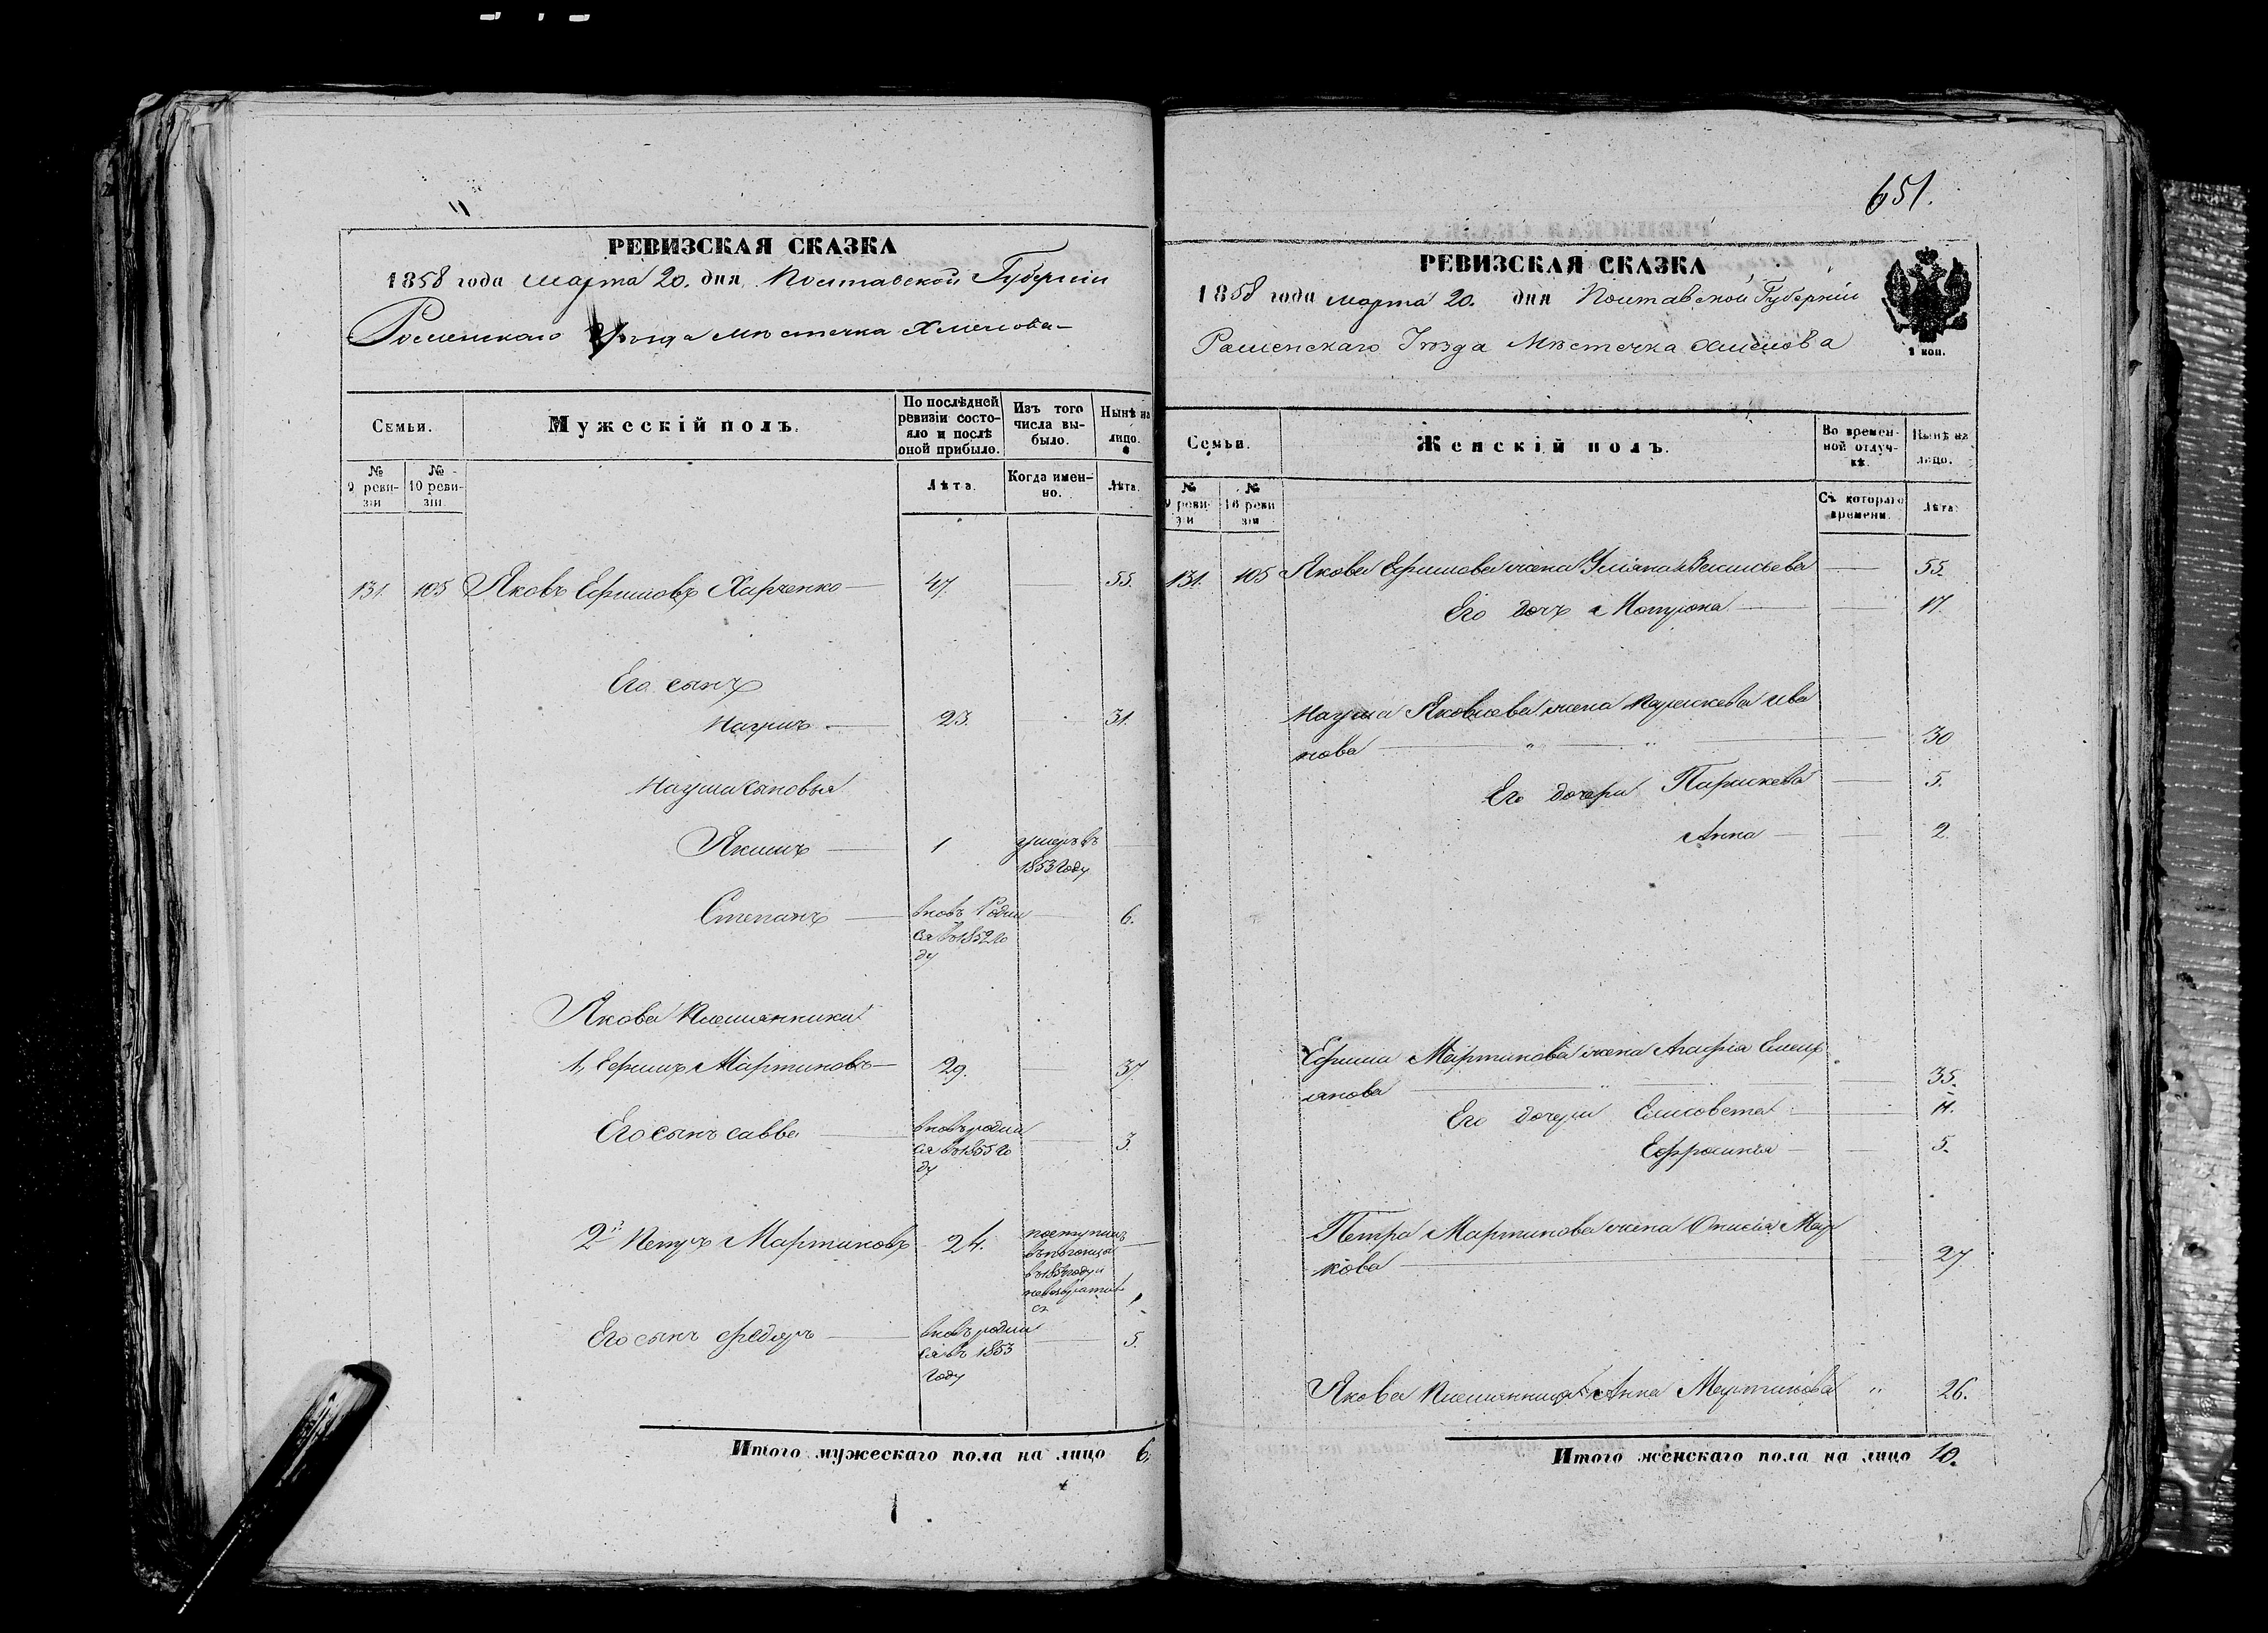 РЕВИЗСКАЯ СКАЗКА
1858 года марта 20. дня Полтавской Губерніи
Роменскаго Уѣзда мѣстечка Хмелова
Семьи.
Мужескій полъ.
По послѣдней ревизіи состояло и послѣ оной прибыло.
Изъ того числа выбыло.
Нынѣ на лицо.
№ 9 ревизіи
№ 10 ревизіи.
Лѣта.
Когда именно.
Лѣта.
131. 105 Яковъ Ефимовъ Харченко 47. 55.
Его сынъ
Наумъ 23. 31.
Наума сыновья
Якимъ 1 умеръ въ
1853 году
Степанъ вновь роди 6.
ся въ 1852 го
ду
Якова племянники
1, Ефимъ Мартиновъ 29. 37.
Его сынъ савва вновь роди 3.
ся въ 1855 го
ду
2й Петръ Мартиновъ 24. поступилъ
въ
в
Его сынъ Федоръ вновь роди 5.
ся въ 1853
году
Итого мужескаго пола на лицо 6.
651.
РЕВИЗСКАЯ СКАЗКА
1858 года марта 20. дня Полтавской Губерніи
Роменскаго Уѣзда Мѣстечка Хмелова
1 коп.
Семьи.
Женскій полъ.
Во временной отлучкѣ.
Нынѣ на лицо.
№ 9 ревизіи
№ 10 ревизіи
Съ котораго времени.
Лѣта.
131. 105 Якова Ефимова жена Уліяна Васильева 55.
Его дочъ Мотрона 17.
Наума Яковлева жена Параскева Ива
нова 30
Его дочери Параскева 5.
Анна 2.
Ефима Мартинова жена Агафія Емель
янова 35.
Его дочери Елисовета 11.
Ефросинья 5.
Петра Мартинова жена Онисія Мар
кова 27.
Якова племянница Анна Мартинова " 26.
Итого женскаго пола на лицо 10.